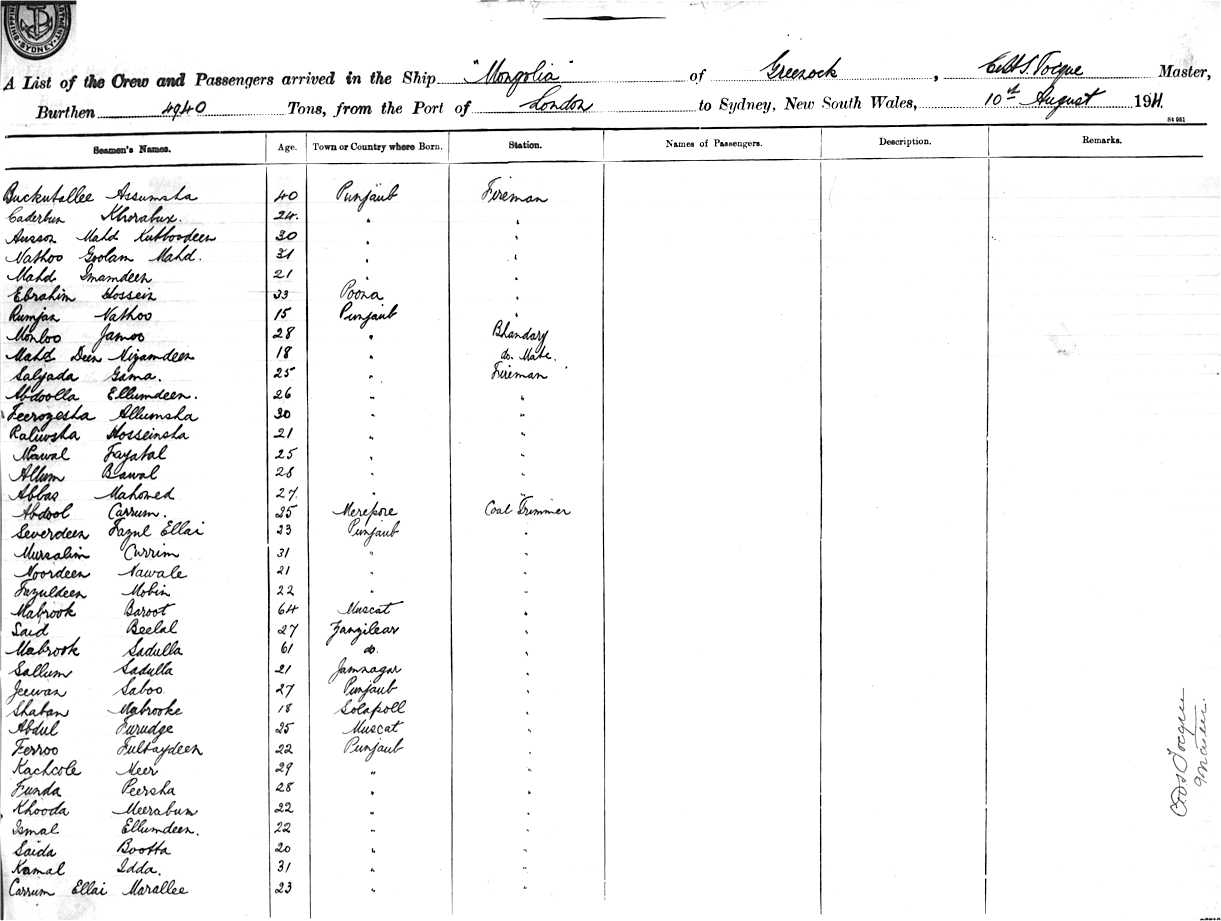 SHIPPING
SYDNEY
A List of the Crew and Passengers arrived in the Ship "Mongolia" of Greenock, Tocque Master,
Burthen 4940 Tons, from the Port of London to Sydney, New South Wales, 10th August 1911.
Seamen's Names. Age. Town or Country where Born. Station. Names of Passengers. Description. Remarks.
Buckutallee Assumsha 40 Punjaub Fireman
Caderbun Khorabux. 24. " "
Ausson Mahd Kutboodeen 30 " "
Nathoo Goolam Mahd. 31 " "
Mahd Imamdeen 21 " "
Ebrahim Hossein 33 Poona "
Rumjan Nathoo 15 Punjaub "
Monloo Jamoo 28 " Bhandary
Mahd Deen Nizamdeen 18 " do. Mate.
Saljada Gama. 25 " Fireman
Abdoolla Ellumdeen. 26 " "
Feerozesha Allumsha 30 " "
Raliwsha Hosseinsha 21 " "
Mawal Fayatal 25 " "
Allum Bawal 28 " "
Abbas Mahomed 27 " "
Abdool Carrum. 25 Merepore Coal Trimmer
Severdeen Fazul Ellai 23 Punjaub "
Mursalim Currim 31 " "
Noordeen Nawale 21 " "
Fazuldeen Mobin 22 " "
Mabrook Baroot 64 Muscat "
Said Beelal 27 Zanzibar "
Mabrook Sadulla 61 do. "
Sallum Sadulla 21 Jamnagar "
Jeewan Saboo 27 Punjaub "
Shaban Mabrooke 18 Solapoll "
Abdul Furudge 25 Muscat "
Ferroo Fultaydeen 22 Punjaub "
Kachcole Meer 29 " "
Funda Peersha 28 " "
Khooda Meerabum 22 " "
Ismal Ellumdeen. 22 " "
Saida Bootta 20 " "
Kamal Idda. 31 " "
Carrum Ellai Marallee 23 " "
Tocque
Master.